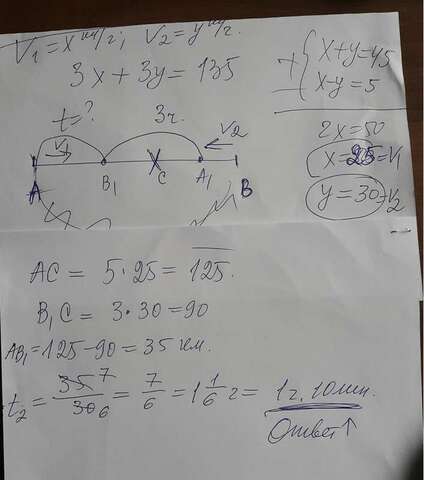 V₁ = x км/г; V₂ = y км/г.
3x + 3y = 135
+ { x + y = 45
x - y = 5
2x = 50
x = 25 = V₁
y = 30 = V₂
t = ?
3г.
V₁
V₂
A B₁ C A₁ B
AC = 5 · 25 = 125.
B₁C = 3 · 30 = 90
AB₁ = 125 - 90 = 35 км.
t₂ = 35 7 / 30 6 = 7/6 = 1 1/6 г = 1г. 10мин.
Ответ ↑